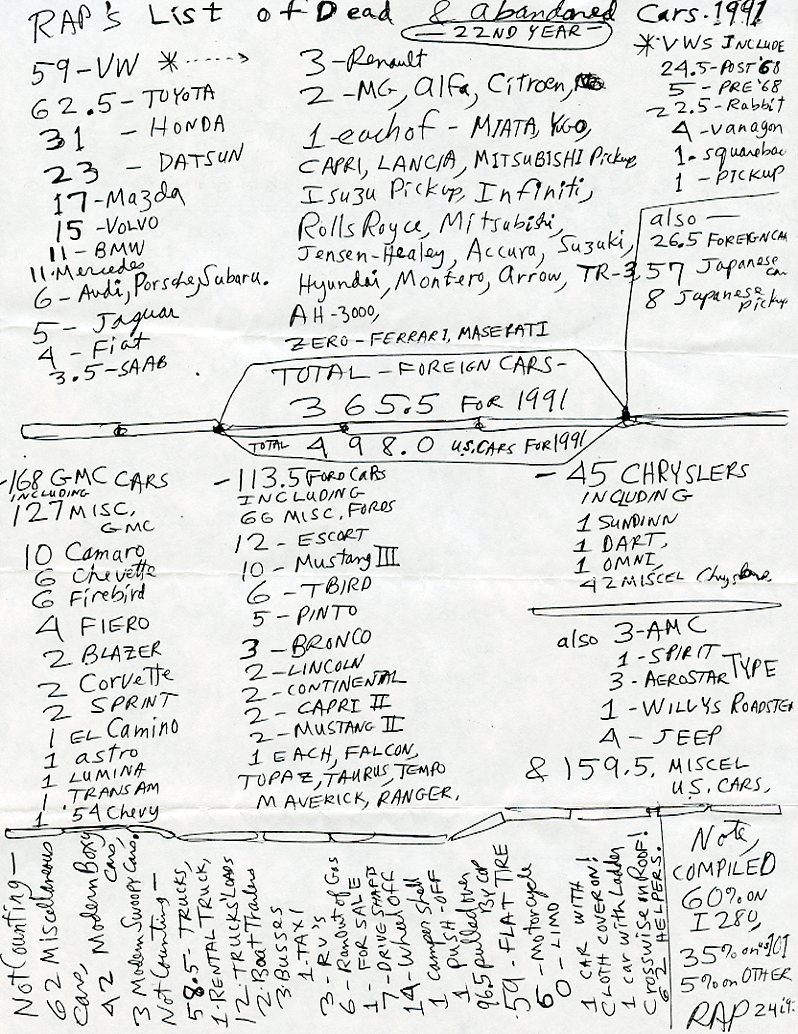 RAP'S List of Dead & abandoned Cars. 1991
— 22ND YEAR —
59 - VW * ----->
62.5 - TOYOTA
31 - HONDA
23 - DATSUN
17 - Mazda
15 - VOLVO
11 - BMW
11. Mercedes
6 - Audi, Porsche, Subaru.
5 - Jaguar
4 - Fiat
3.5 - SAAB
3 - Renault
2 - MG, alfa, Citroen,
1 - each of - MIATA, YUGO,
CAPRI, LANCIA, MITSUBISHI Pickup
Isuzu Pickup, Infiniti,
Rolls Royce, Mitsubishi,
Jensen-Healey, Accura, Suzuki,
Hyundai, Montero, Arrow, TR-3,
AH-3000,
ZERO - FERRARI, MASERATI
* VWS INCLUDE
24.5 - POST '68
5 - PRE '68
22.5 - Rabbit
4 - vanagon
1 - squareback
1 - PICKUP
also —
26.5 FOREIGN CAR
57 Japanese car
8 Japanese pickup
TOTAL - FOREIGN CARS -
365.5 FOR 1991
TOTAL 498.0 U.S. CARS FOR 1991
- 168 GMC CARS
INCLUDING
127 MISC. GMC
10 Camaro
6 Chevette
6 Firebird
4 FIERO
2 BLAZER
2 Corvette
2 SPRINT
1 EL Camino
1 astro
1 LUMINA
1 TRANSAM
1 '54 Chevy
- 113.5 FORD CARS
INCLUDING
66 MISC. FORDS
12 - ESCORT
10 - Mustang III
6 - TBIRD
5 - PINTO
3 - BRONCO
2 - LINCOLN
2 - CONTINENTAL
2 - CAPRI II
2 - MUSTANG II
1 EACH, FALCON,
TOPAZ, TAURUS, TEMPO
MAVERICK, RANGER.
- 45 CHRYSLERS
INCLUDING
1 SUNDINN
1 DART,
1 OMNI,
42 MISCEL Chryslers.
also 3 - AMC
1 - SPIRIT
3 - AEROSTAR TYPE
1 - WILLYS ROADSTER
4 - JEEP
& 159.5. MISCEL
U.S. CARS.
Not Counting —
62 Miscellaneous Cars,
42 Modern Boxy Cars,
3 Modern Swoopy Cars.
Not Counting —
58.5 - TRUCKS,
1 - RENTAL TRUCK,
12 - TRUCKS' Loads
2 - Boat Trailers
3 - Busses
1 - TAXI
3 - RV's
6 - Ran out of Gas
1 - FOR SALE
7 - DRIVE SHAFTS
14 - Wheel OFF
1 camper shell
1 PUSH-OFF
965 pulled over By COP
59 - FLAT TIRE
6 - Motorcycle
0 - LIMO
1 CAR WITH
CLOTH COVER ON!
1 car with Ladder
Crosswise on ROOF!
62 HELPERS.
Note,
COMPILED
60% ON
I 280,
35% on 101
5% on OTHER
RAP